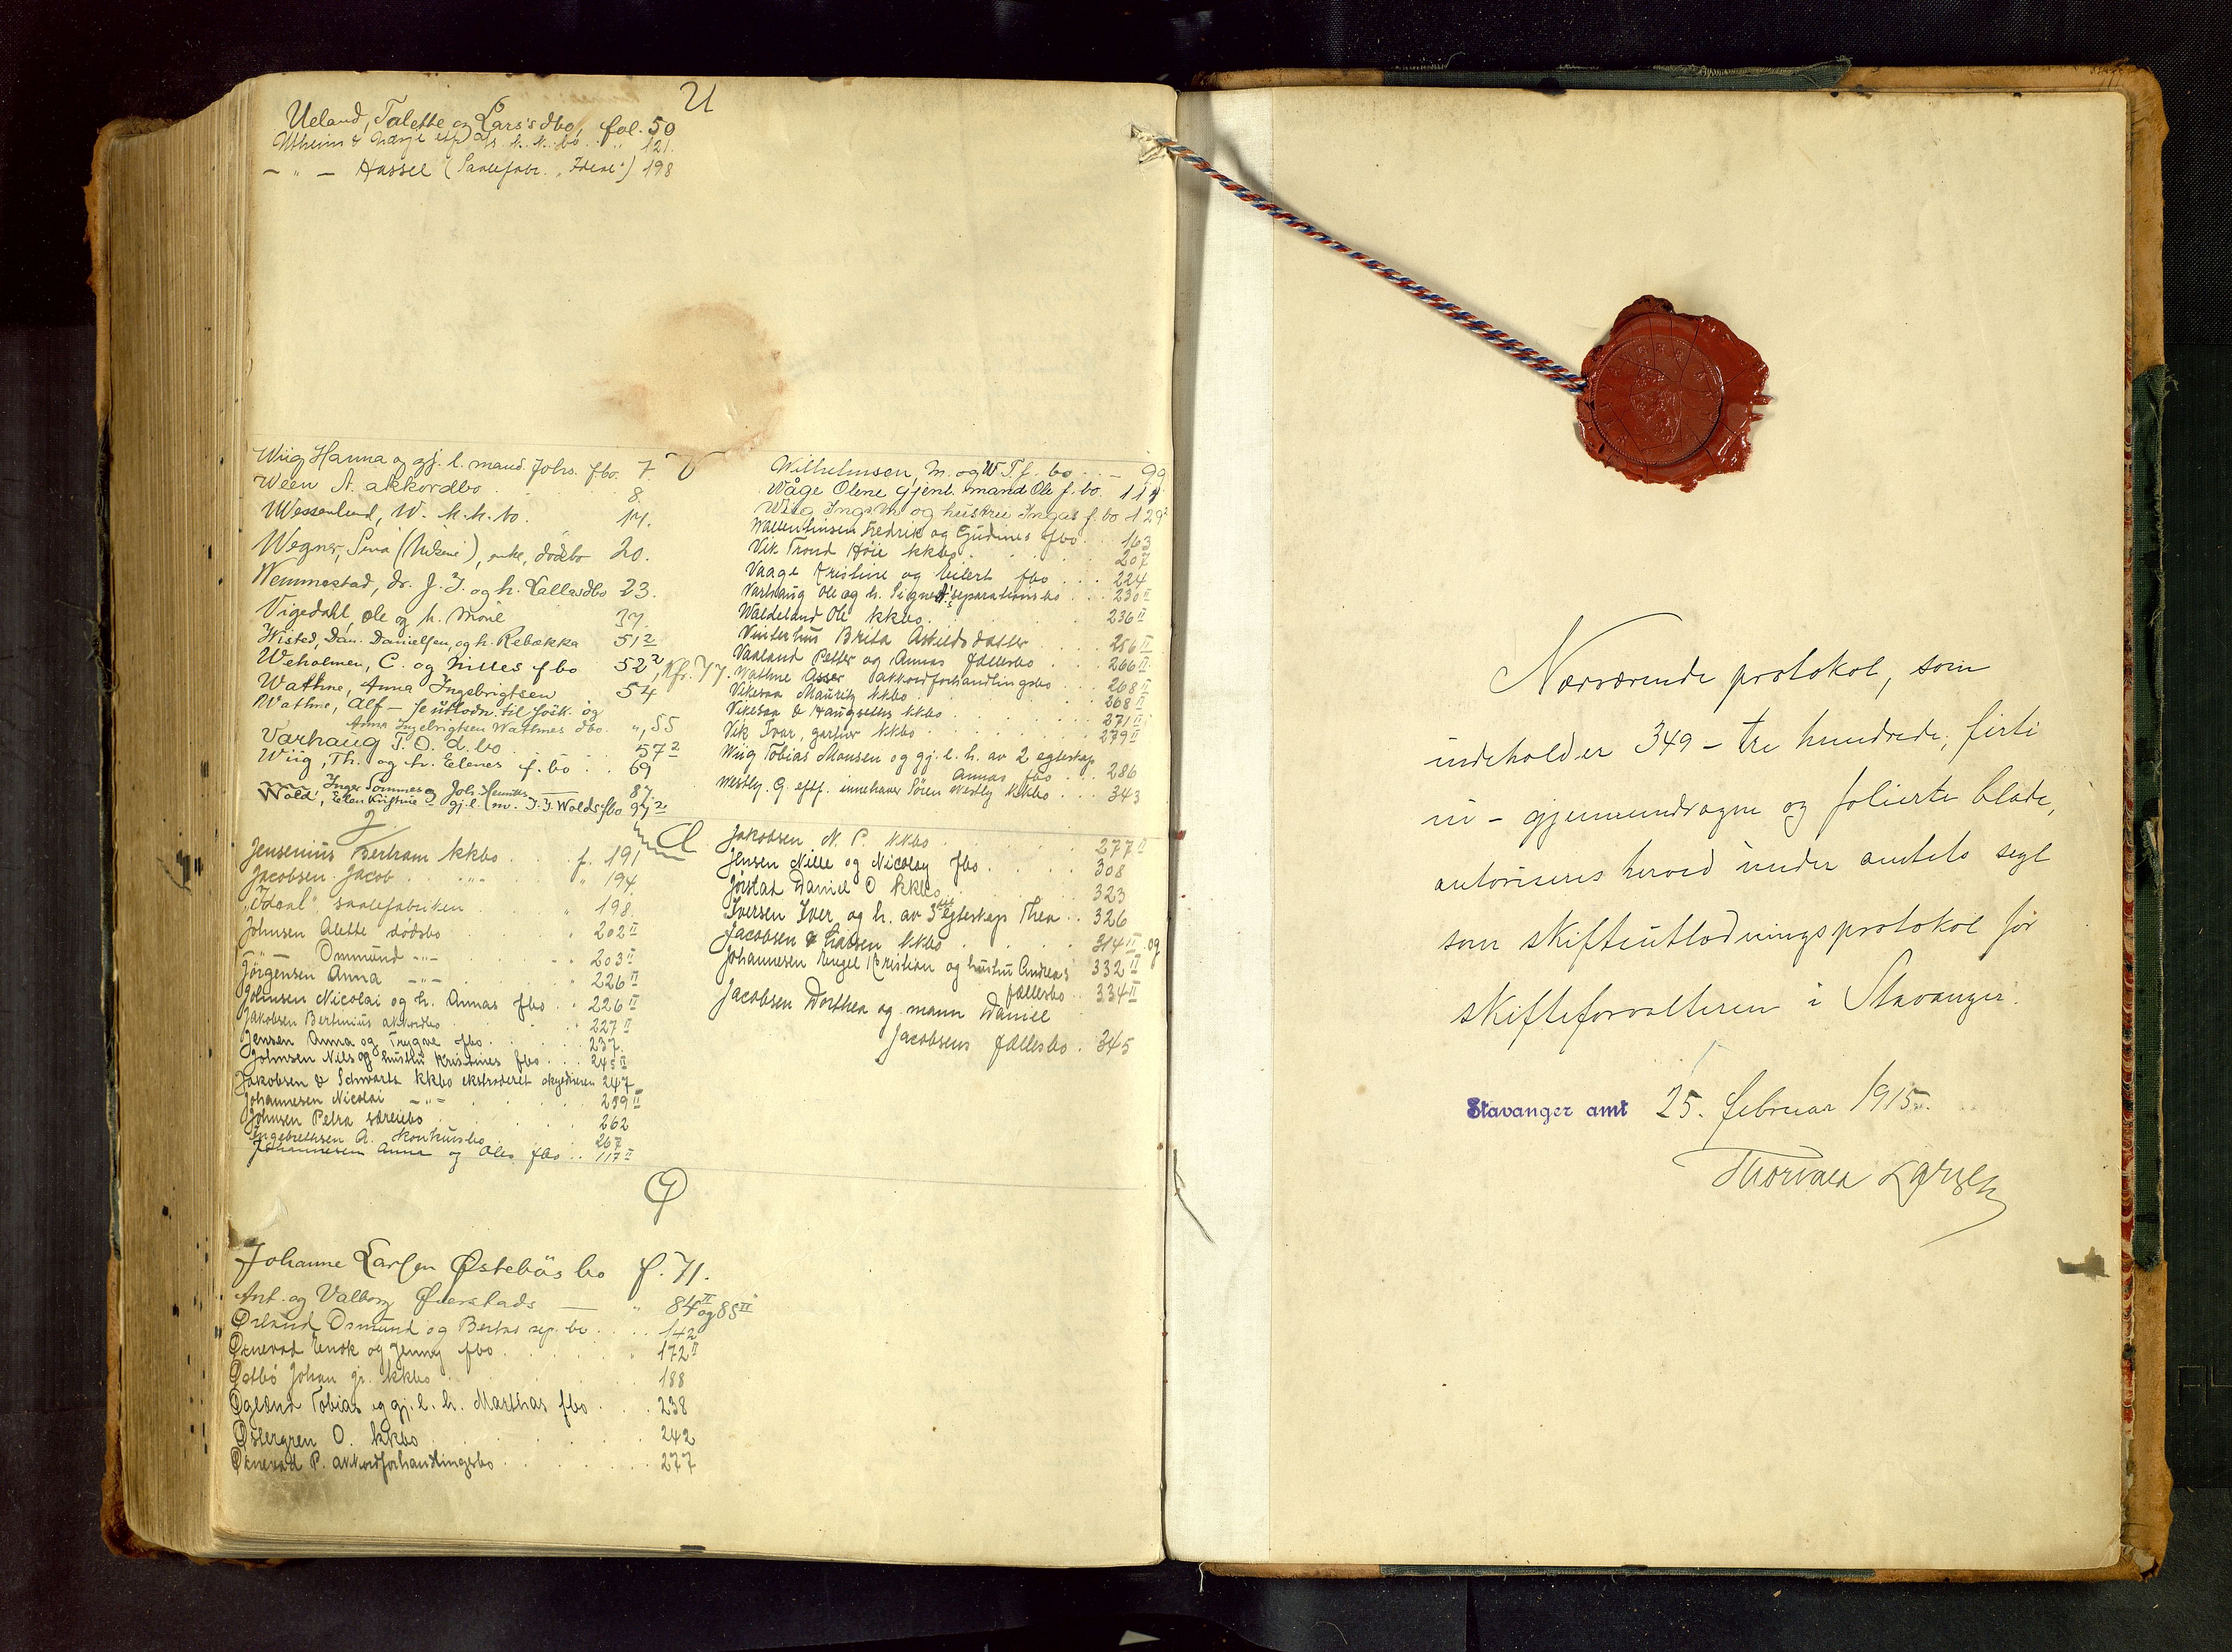 U
Ueland, Talette og Lars's dbo, fol. 50
121.
— " — Hassel (Saalefabr. "Ideal") 198
V
Wiig Hanna og gj. l. mand Johs. fbo. 7.
Ween A. akkordbo 8.
W. k.k.bo. 14.
Wegner, Sina (), enke, dødsbo 20.
Wemmestad, dr. J. J. og h. Lallas dbo 23.
Vigedahl, Ole og h. 37.
Wisted, Dan. Danielsen, og h. Rebækka 51²
Weholmen, C. og fbo 52², Kfr. 77.
Wathne, Anna Ingebrigtsen 54
Wathne, Alf – se utlodn. til og
Anna Ingebrigtsen Wathnes dbo. ", 55
Varhaug T. O. d.bo 57²
Wiig, Th. og h. Elenes f.bo 69
Inger Sömmes og Joh. — 87.
Wold, Ellen Kristine og gj.l. m. J. J. Wolds fbo 94²
Wilhelmsen, M. og W T.f. bo — 99
Wåge Olene gjenl. mand Ole f.bo. 114
Wiig Ing. M og hustru Ingas f.bo 129²
Wallentinsen Fredrik og Gudines fbo 163
Vik Trond Höie kkbo 207
Vaage Kristine og Eilert fbo 224
Varhaug Ole og h. Signes separationsbo 230 II
Waldeland Ole kkbo 236 II
Vinterhus Brita Askildsdatter 256 II
Vaaland Petter og Annas fællesbo 266 II
Wathne Asser akkordforhandlingsbo 268 II
Vikesaa Mauritz kkbo 268 II
Vikesaa & Haugseths kkbo 271 II
Vik Ivar, gartner kkbo 279 II
Wiig Tobias Monsen og gj. l. h. av 2 egteskap
Annas fbo 286
Westly. G. eftf. innehaver Sören Westly kkbo 343
J
Jensenius Bertram kkbo f. 191
Jacobsen Jacob -"- " 194
"Ideal" saalefabriken " 198.
Johnsen Alette dødsbo " 202 II
— " — Ommund -"- 203 II
Jörgensen Anna -"- 226 II
Johnsen Nicolai og h. Annas fbo 226 II
Jakobsen Bertinius akkordbo 227 II
Jensen Anna og Trygve fbo 237
Johnsen Nils og hustru Kristines fbo 245 II
Jakobsen & Schwartz kkbo ekstraderet skyldneren 247
Johannesen Nicolai -"- 259 II
Johnsen Petra særeiebo 262
Ingebretsen A. konkursbo 267
Johannesen Anna og Oles fbo 117 II
Jakobsen N. P. kkbo 277 II
Jensen Nille og Nicolay fbo 308
Jørstad Daniel O kkbo 323
Iversen Iver og h. av 3die egteskap Thea 326
Jacobsen & Larsen kkbo 314 II og
Johannesen Engel Kristian og hustru Andreas 332 II
fællesbo 334 II
Jacobsen Dorthea og mann Daniel
Jacobsens fællesbo 345
Ø
Johanne Larsen Østebös bo f. 71.
Ant. og Valborg Øverstads — " 84 II og 85 II
Ørland Osmund og Bertas sep. bo 142
Øknevad Enok og Jenny fbo 172 II
Østbö Johan gr. kkbo 188
Øglænd Tobias og gj. l. h. Marthas fbo 238
Östergren O. kkbo 242
Øknevad P. akkordforhandlingsbo 277
Nærværende protokol, som
indeholder 349 – tre hundrede, firti
ni – gjennemdragne og folierte blade,
autoriseres herved under amtets segl
som skifteutlodningsprotokol for
skifteforvalteren i Stavanger.
Stavanger amt 25. februar 1915.
Thorvald Larsen